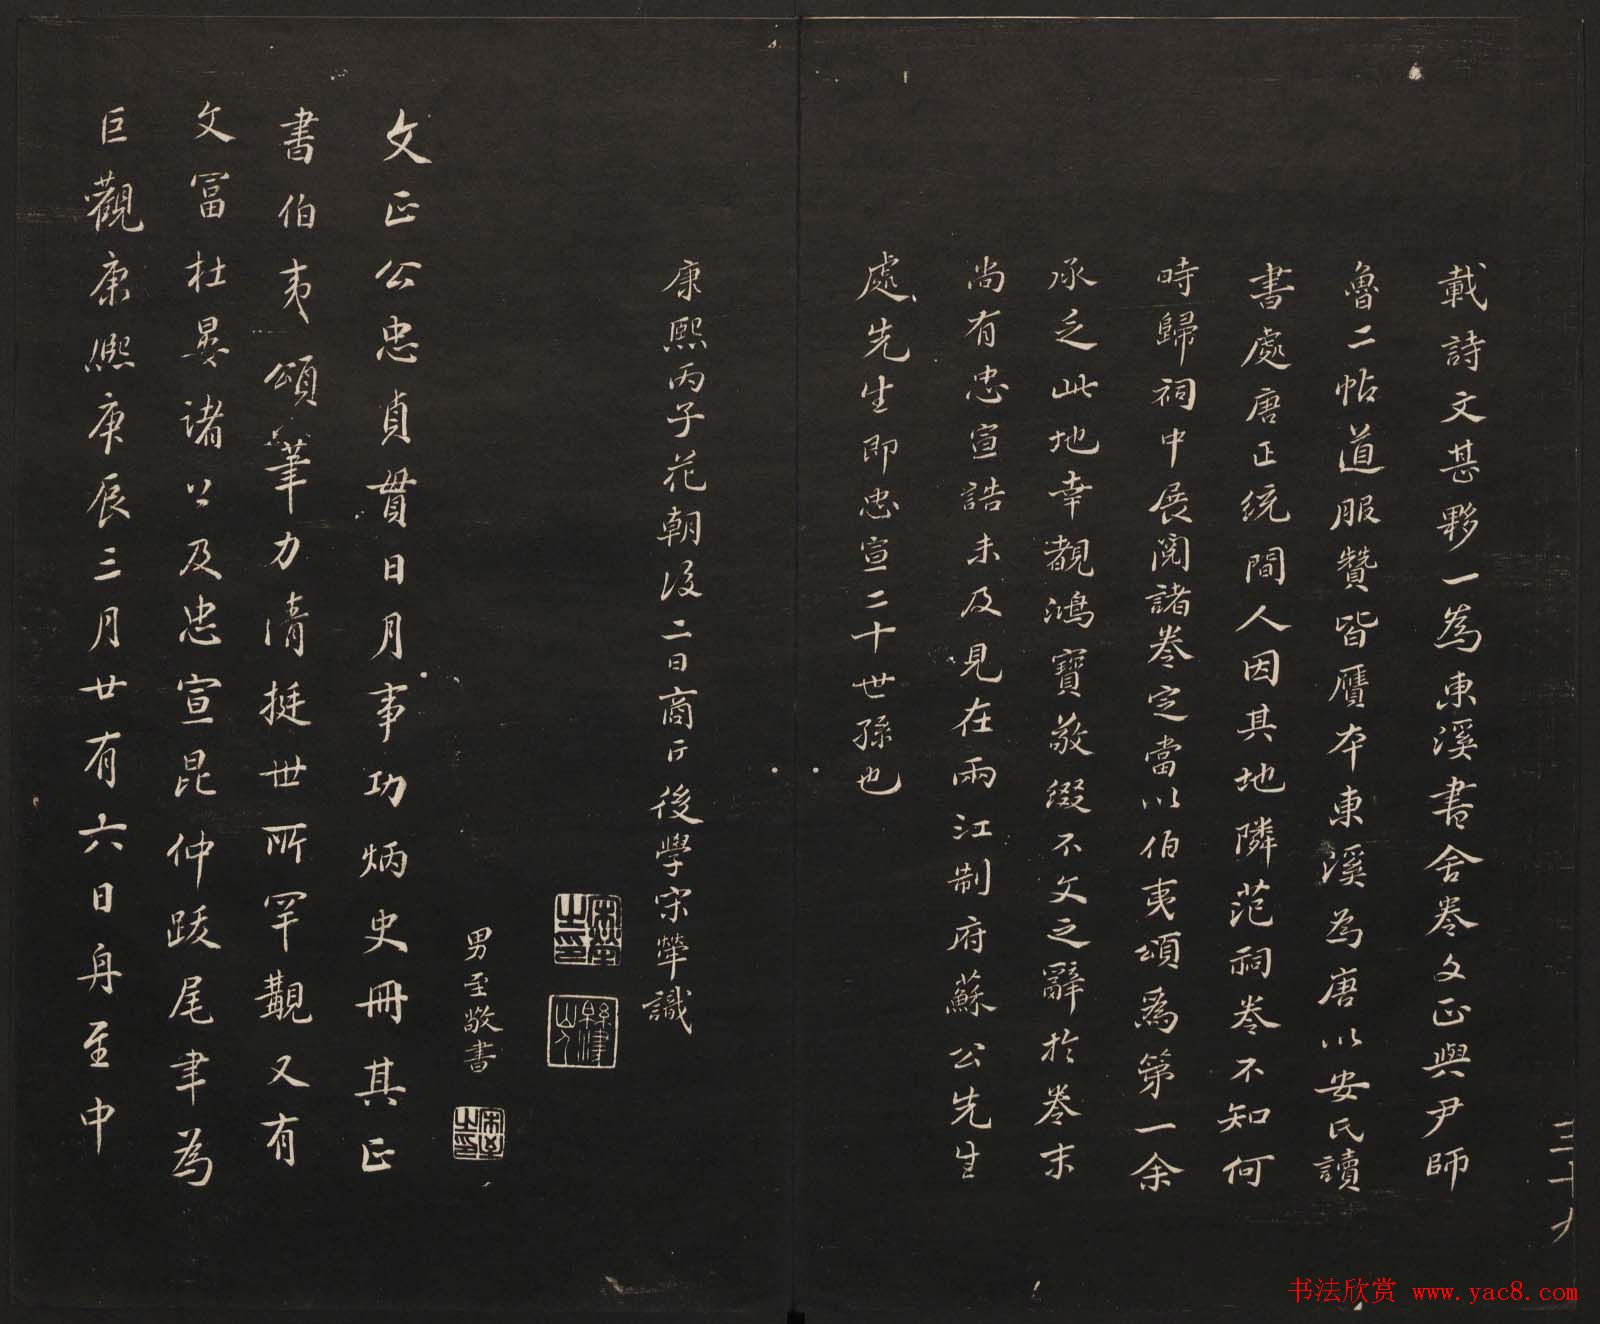 載詩文甚夥一為東溪書舍卷文正與尹師
魯二帖道服贊皆贗本東溪為唐以安氏讀
書處唐正統間人因其地隣范祠卷不知何
時歸祠中展閱諸卷定當以伯夷頌為第一余
承乏此地幸覩鴻寶敬綴不文之辭於卷末
尚有忠宣誥未及見在兩江制府蘇公先生
處先生即忠宣二十世孫也
康熙丙子花朝後二日商丘後學宋犖識
宋犖之印
緜津山人
男至敬書
宋至之印
文正公忠貞貫日月事功炳史冊其正
書伯夷頌筆力清挺世所罕覯又有
文富杜晏諸公及忠宣昆仲跋尾聿為
巨觀康熙庚辰三月廿有六日舟至中
三十九
书法欣赏 www.yac8.com